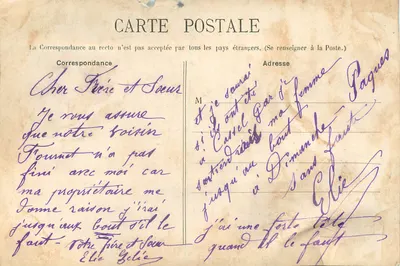 CARTE POSTALE
La Correspondance au recto n'est pas acceptée par tous les pays étrangers. (Se renseigner à la Poste.)
Correspondance
Adresse
Cher Frére et Sœur
Je vous assure
que notre voisin
Fournet n'a pas
fini avec moi car
ma propriétaire me
donne raison j'irai
jusqu'aux bout s'il le
faut - votre Frère et Sœur
Elie
M
et je saurai
s'il ont été
a Cassel car je
ma femme
jusqu'au bout
à Dimanche Paques
sans faute
Elie
j'ai une forte tête
quand il le faut